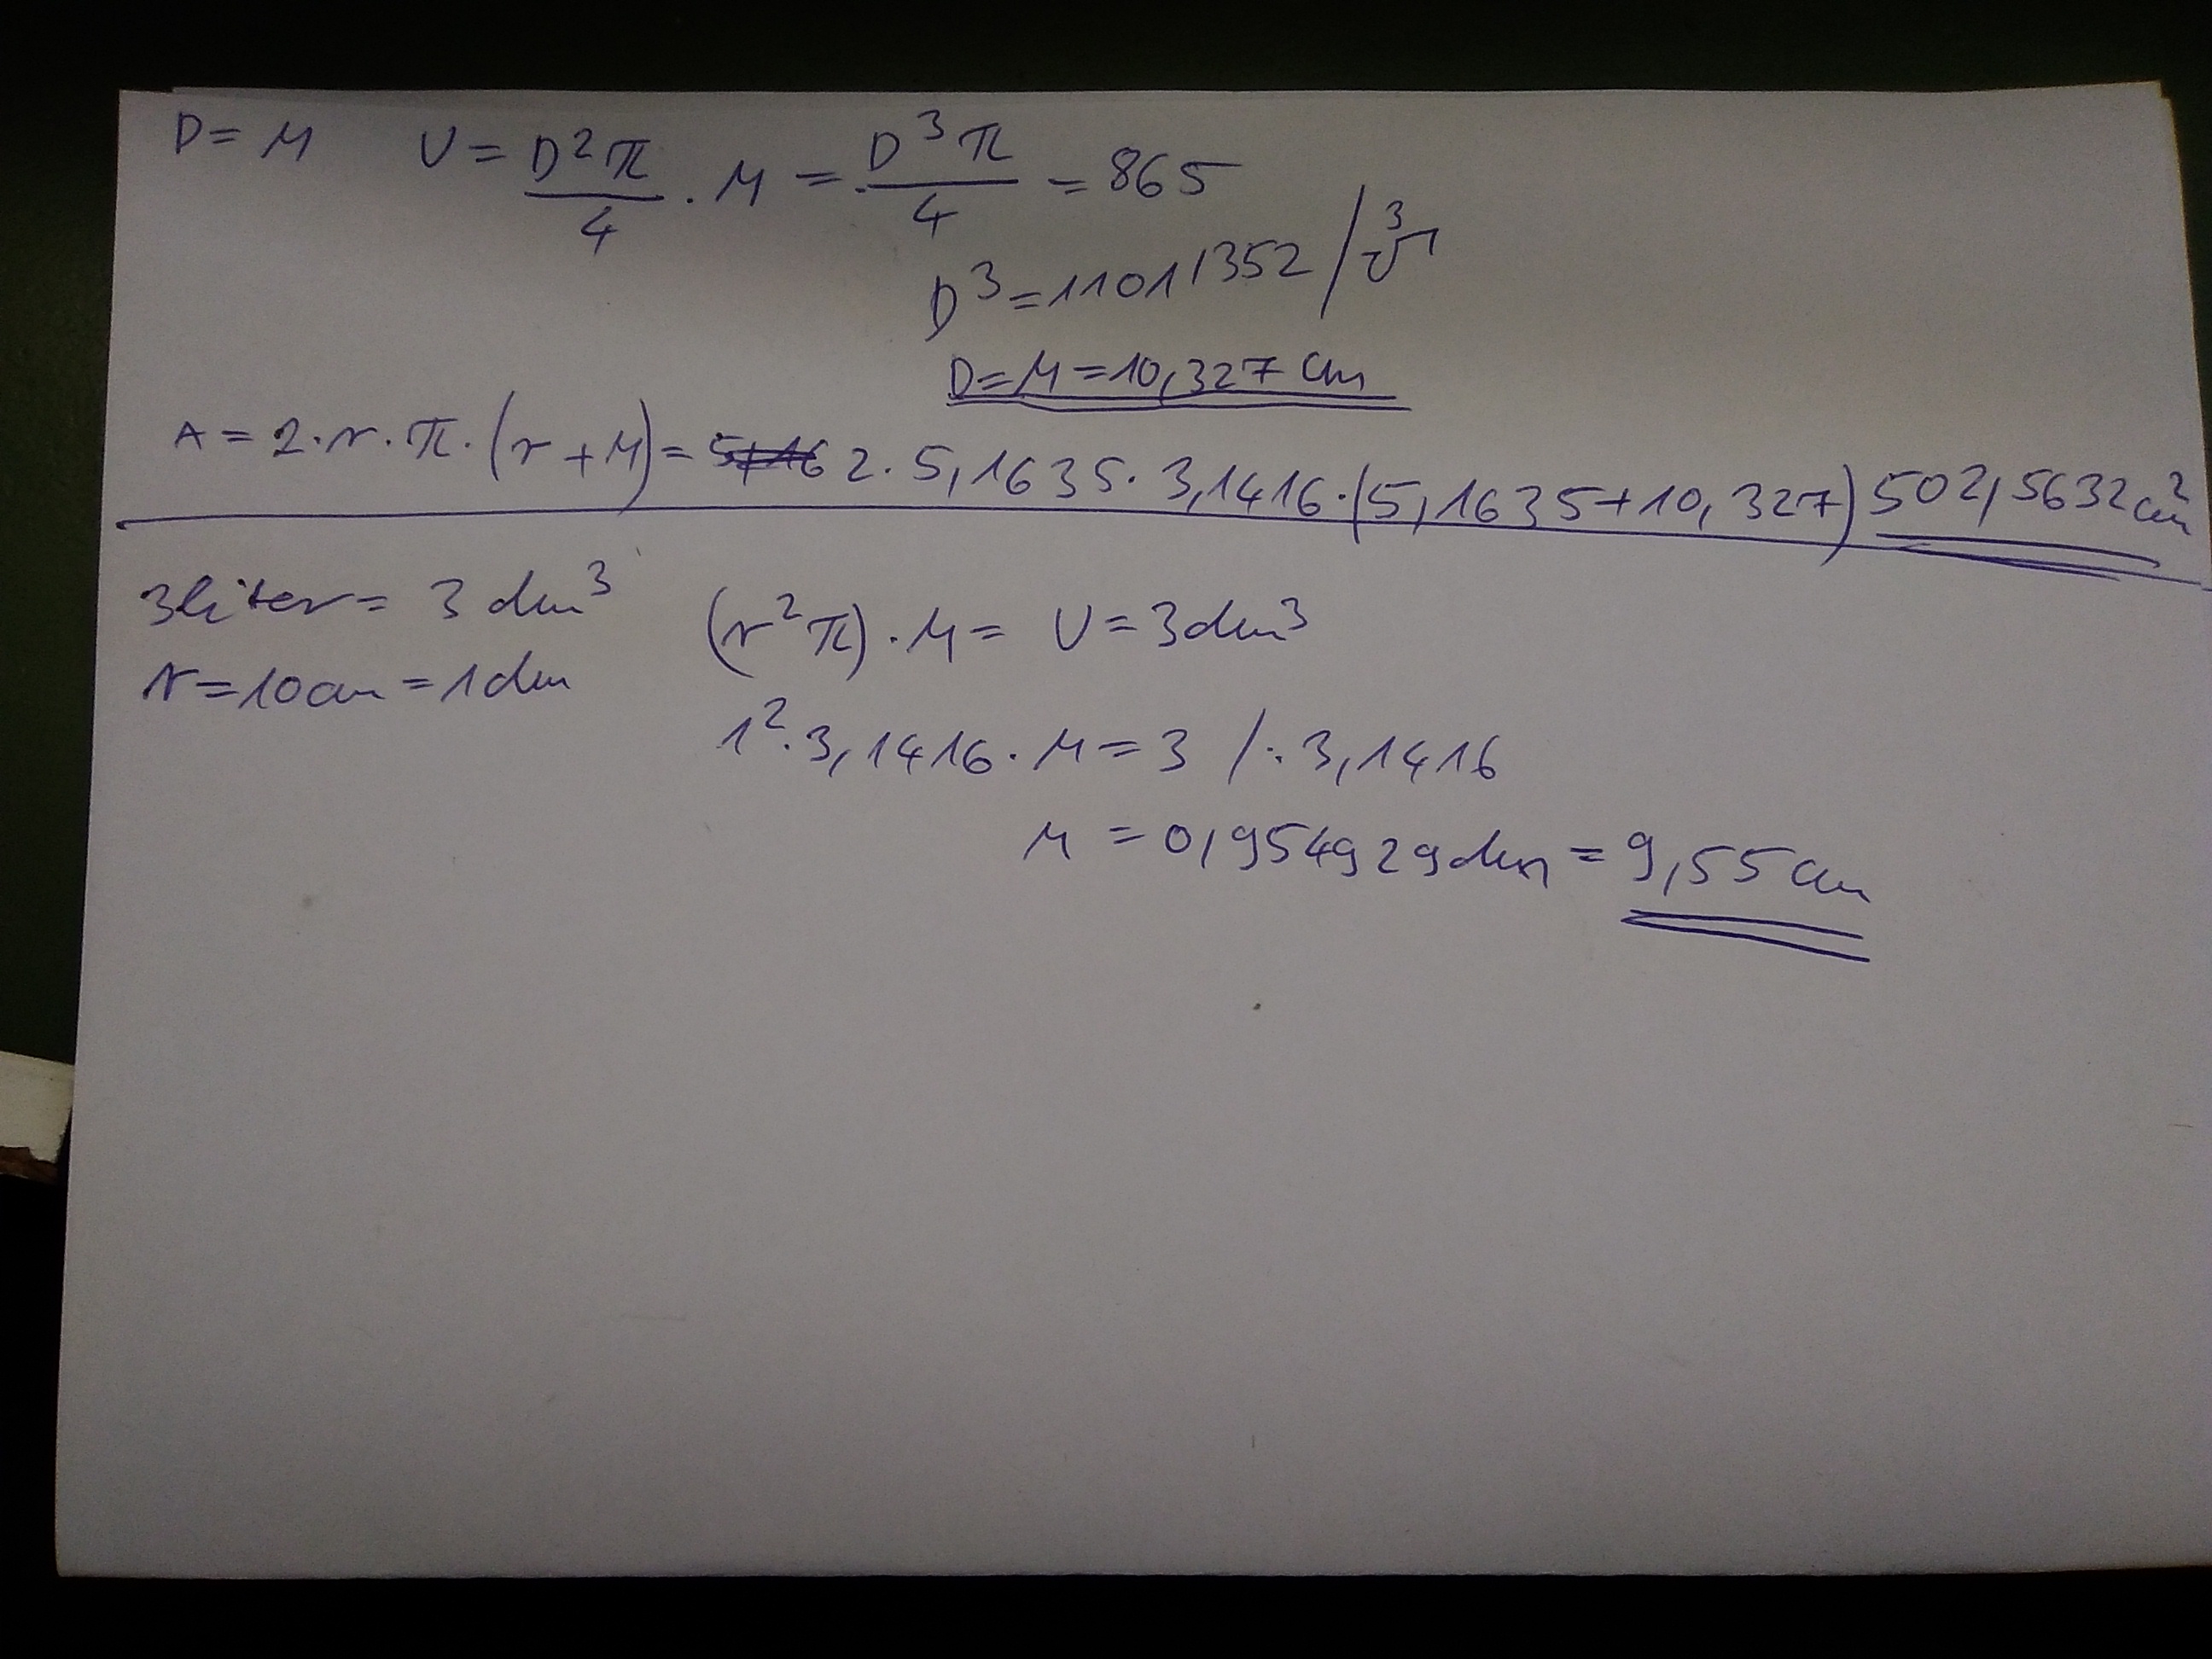 D = M V = D²π/4 · M = D³π/4 = 865
D³ = 1101,352 / ∛
D = M = 10,327 cm
A = 2·r·π·(r+M) = 2·5,1635·3,1416·(5,1635+10,327) 502,5632 cm²
3liter = 3 dm³ (r²π)·M = V = 3dm³
r = 10cm = 1dm
1²·3,1416·M = 3 /:3,1416
M = 0,954929dm = 9,55 cm